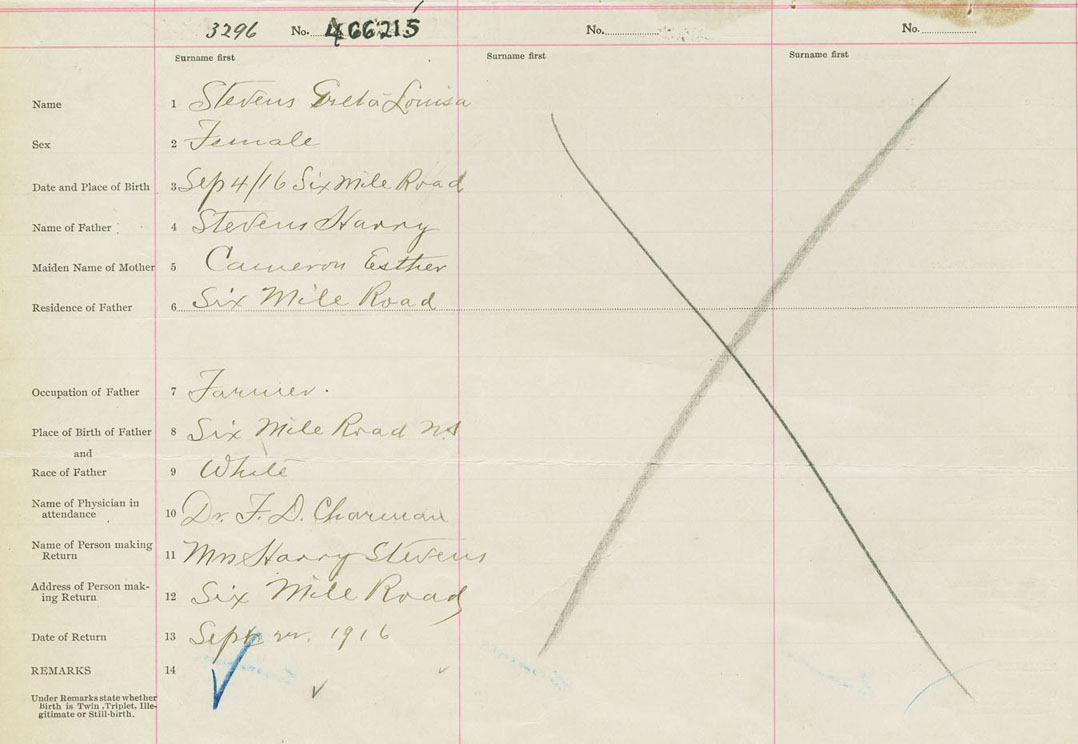 3296 No. 466215 No. No.
Surname first Surname first Surname first
Name 1 Stevens Greta Louisa
Sex 2 Female
Date and Place of Birth 3 Sep 4/16 Six Mile Road
Name of Father 4 Stevens Harry
Maiden Name of Mother 5 Cameron Esther
Residence of Father 6 Six Mile Road
Occupation of Father 7 Farmer.
Place of Birth of Father 8 Six Mile Road NS
and
Race of Father 9 White
Name of Physician in
attendance 10 Dr. F. D. Charman
Name of Person making
Return 11 Mrs Harry Stevens
Address of Person mak-
ing Return 12 Six Mile Road
Date of Return 13 Sept 1916
REMARKS 14
Under Remarks state whether
Birth is Twin, Triplet, Ille-
gitimate or Still-birth.